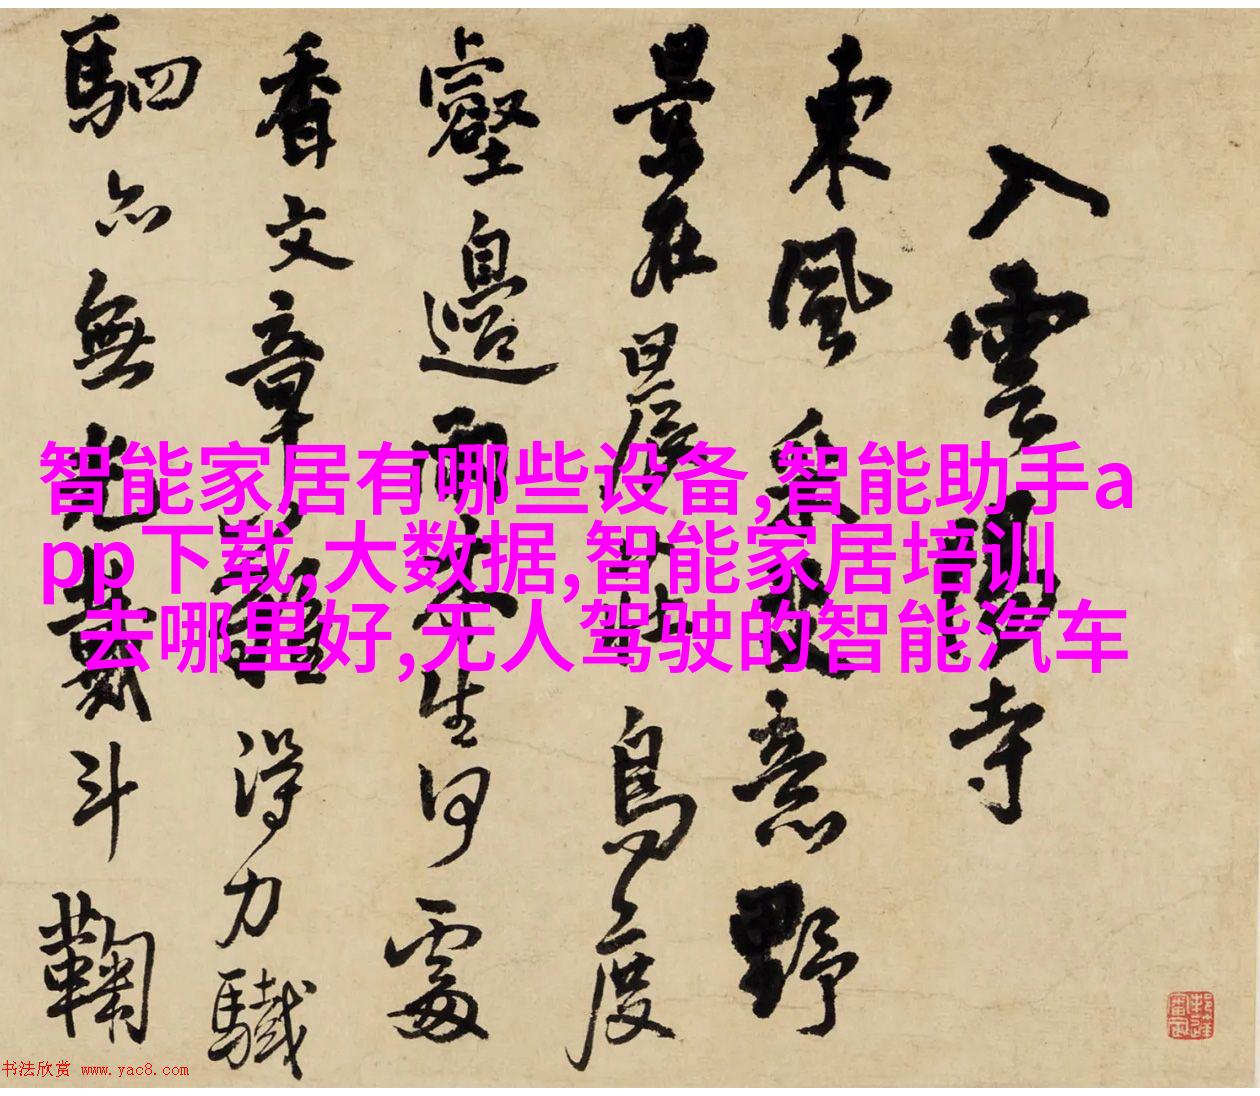 入雲寺
東風意野
景在晨鳥度
壑邊雨生何處
香文章得力驖
駟無斗鞠
智能家居有哪些设备,智能助手a
pp下载,大数据,智能家居培训
去哪里好,无人驾驶的智能汽车
书法欣赏 www.yac8.com